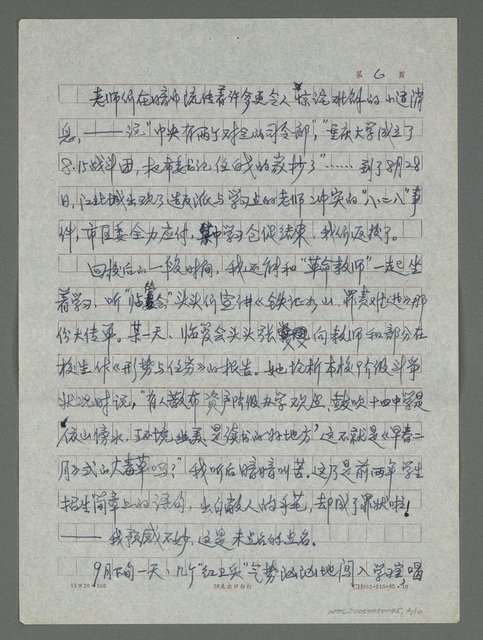 第 6 頁
老师们在暗中流传着许多更令人惊诧的小道消
息，——说“中央有两个对立的司令部”，“重庆大学成立了
8·15战斗团，把市委书记任白戈的家抄了”……到了8月28
日，江北城出现了造反派与学习点的老师冲突的“八·二八”事
件，市区委全力应付，集中学习仓促结束，我们返校了。
回校后的一段时间，我还能和“革命教师”一起坐
着学习，听“临筹会”头头们宣讲《铁证如山，罪责难逃》那
份大传单。某一天，临筹会头头张 向教师和部分在
校生作《形势与任务》的报告。她论析本校阶级斗争
状况时说，“有人散布资产阶级办学观点，鼓吹十四中学是
‘依山傍水，环境幽美，是读书的好地方’，这不就是《早春二
月》式的大毒草吗？”我听后暗暗叫苦。这是前两年学生
招生简章上的语句，出自敝人的手笔，却成了罪状啦！
——我预感不妙，这是未点名的点名。
9月下旬一天，几个“红卫兵”气势汹汹地闯入学习室，喝
15×20=300
NMTL20050050045, 6/10